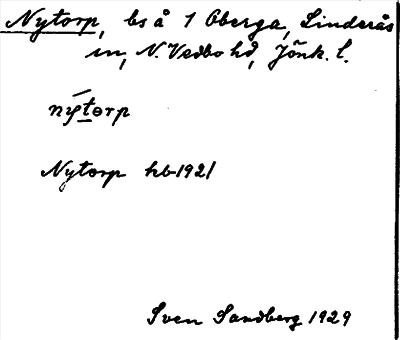 Nytorp, bs å 1 Oberga, Linderås
sn, N. Vedbo hd, Jönk. l.
nytɵrp
Nytorp hb 1921
Sven Sandberg 1929